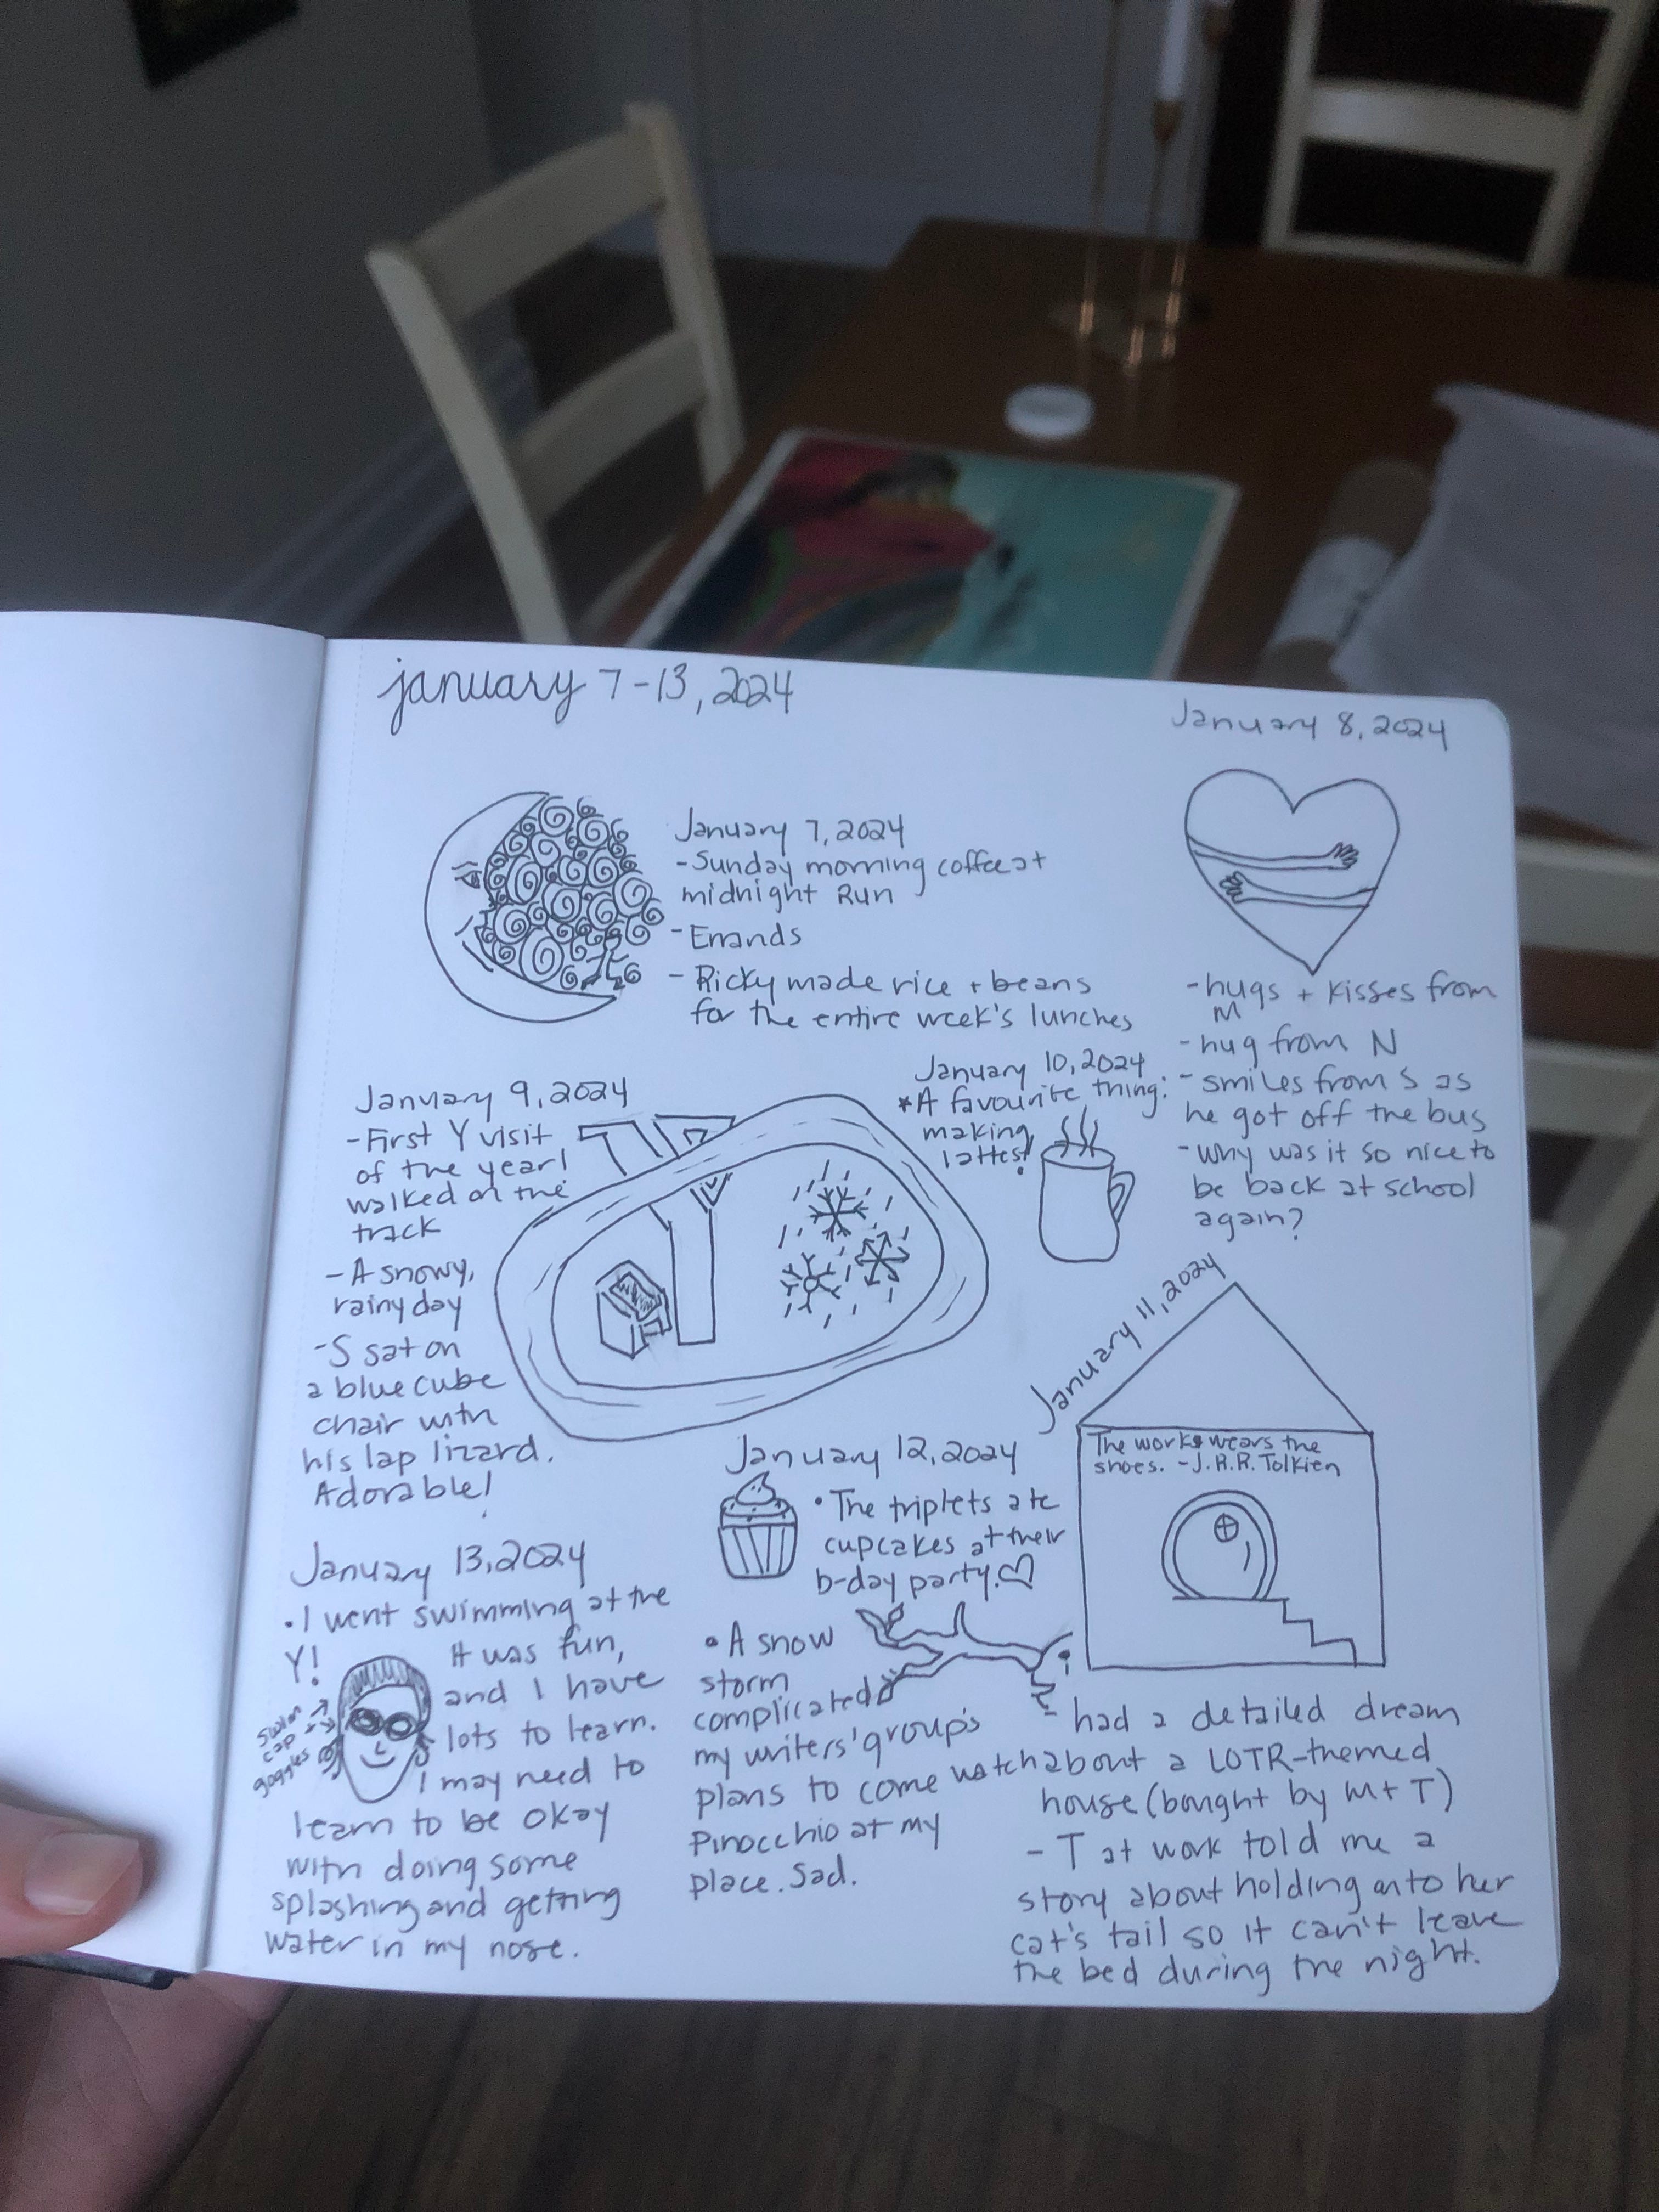 january 7-13, 2024
January 7, 2024
-Sunday morning coffee at
midnight Run
-Errands
-Ricky made rice + beans
for the entire week's lunches
January 8, 2024
-hugs + kisses from
M
-hug from N
-smiles from S as
he got off the bus
-Why was it so nice to
be back at school
again?
January 9, 2024
-First Y visit
of the year!
walked on the
track
-A snowy,
rainy day
-S sat on
a blue cube
chair with
his lap lizard.
Adorable!
January 10, 2024
*A favourite thing:
making
lattes!
January 11, 2024
The works wears the
shoes. -J.R.R. Tolkien
- had a detailed dream
about a LOTR-themed
house (bought by M + T)
- T at work told me a
story about holding onto her
cat's tail so it can't leave
the bed during the night.
January 12, 2024
•The triplets ate
cupcakes at their
b-day party.
•A snow
storm
complicated
my writers' group's
plans to come watch
Pinocchio at my
place. Sad.
January 13, 2024
•I went swimming at the
Y! It was fun,
and I have
lots to learn.
I may need to
learn to be okay
with doing some
splashing and getting
water in my nose.
swim
cap
goggles